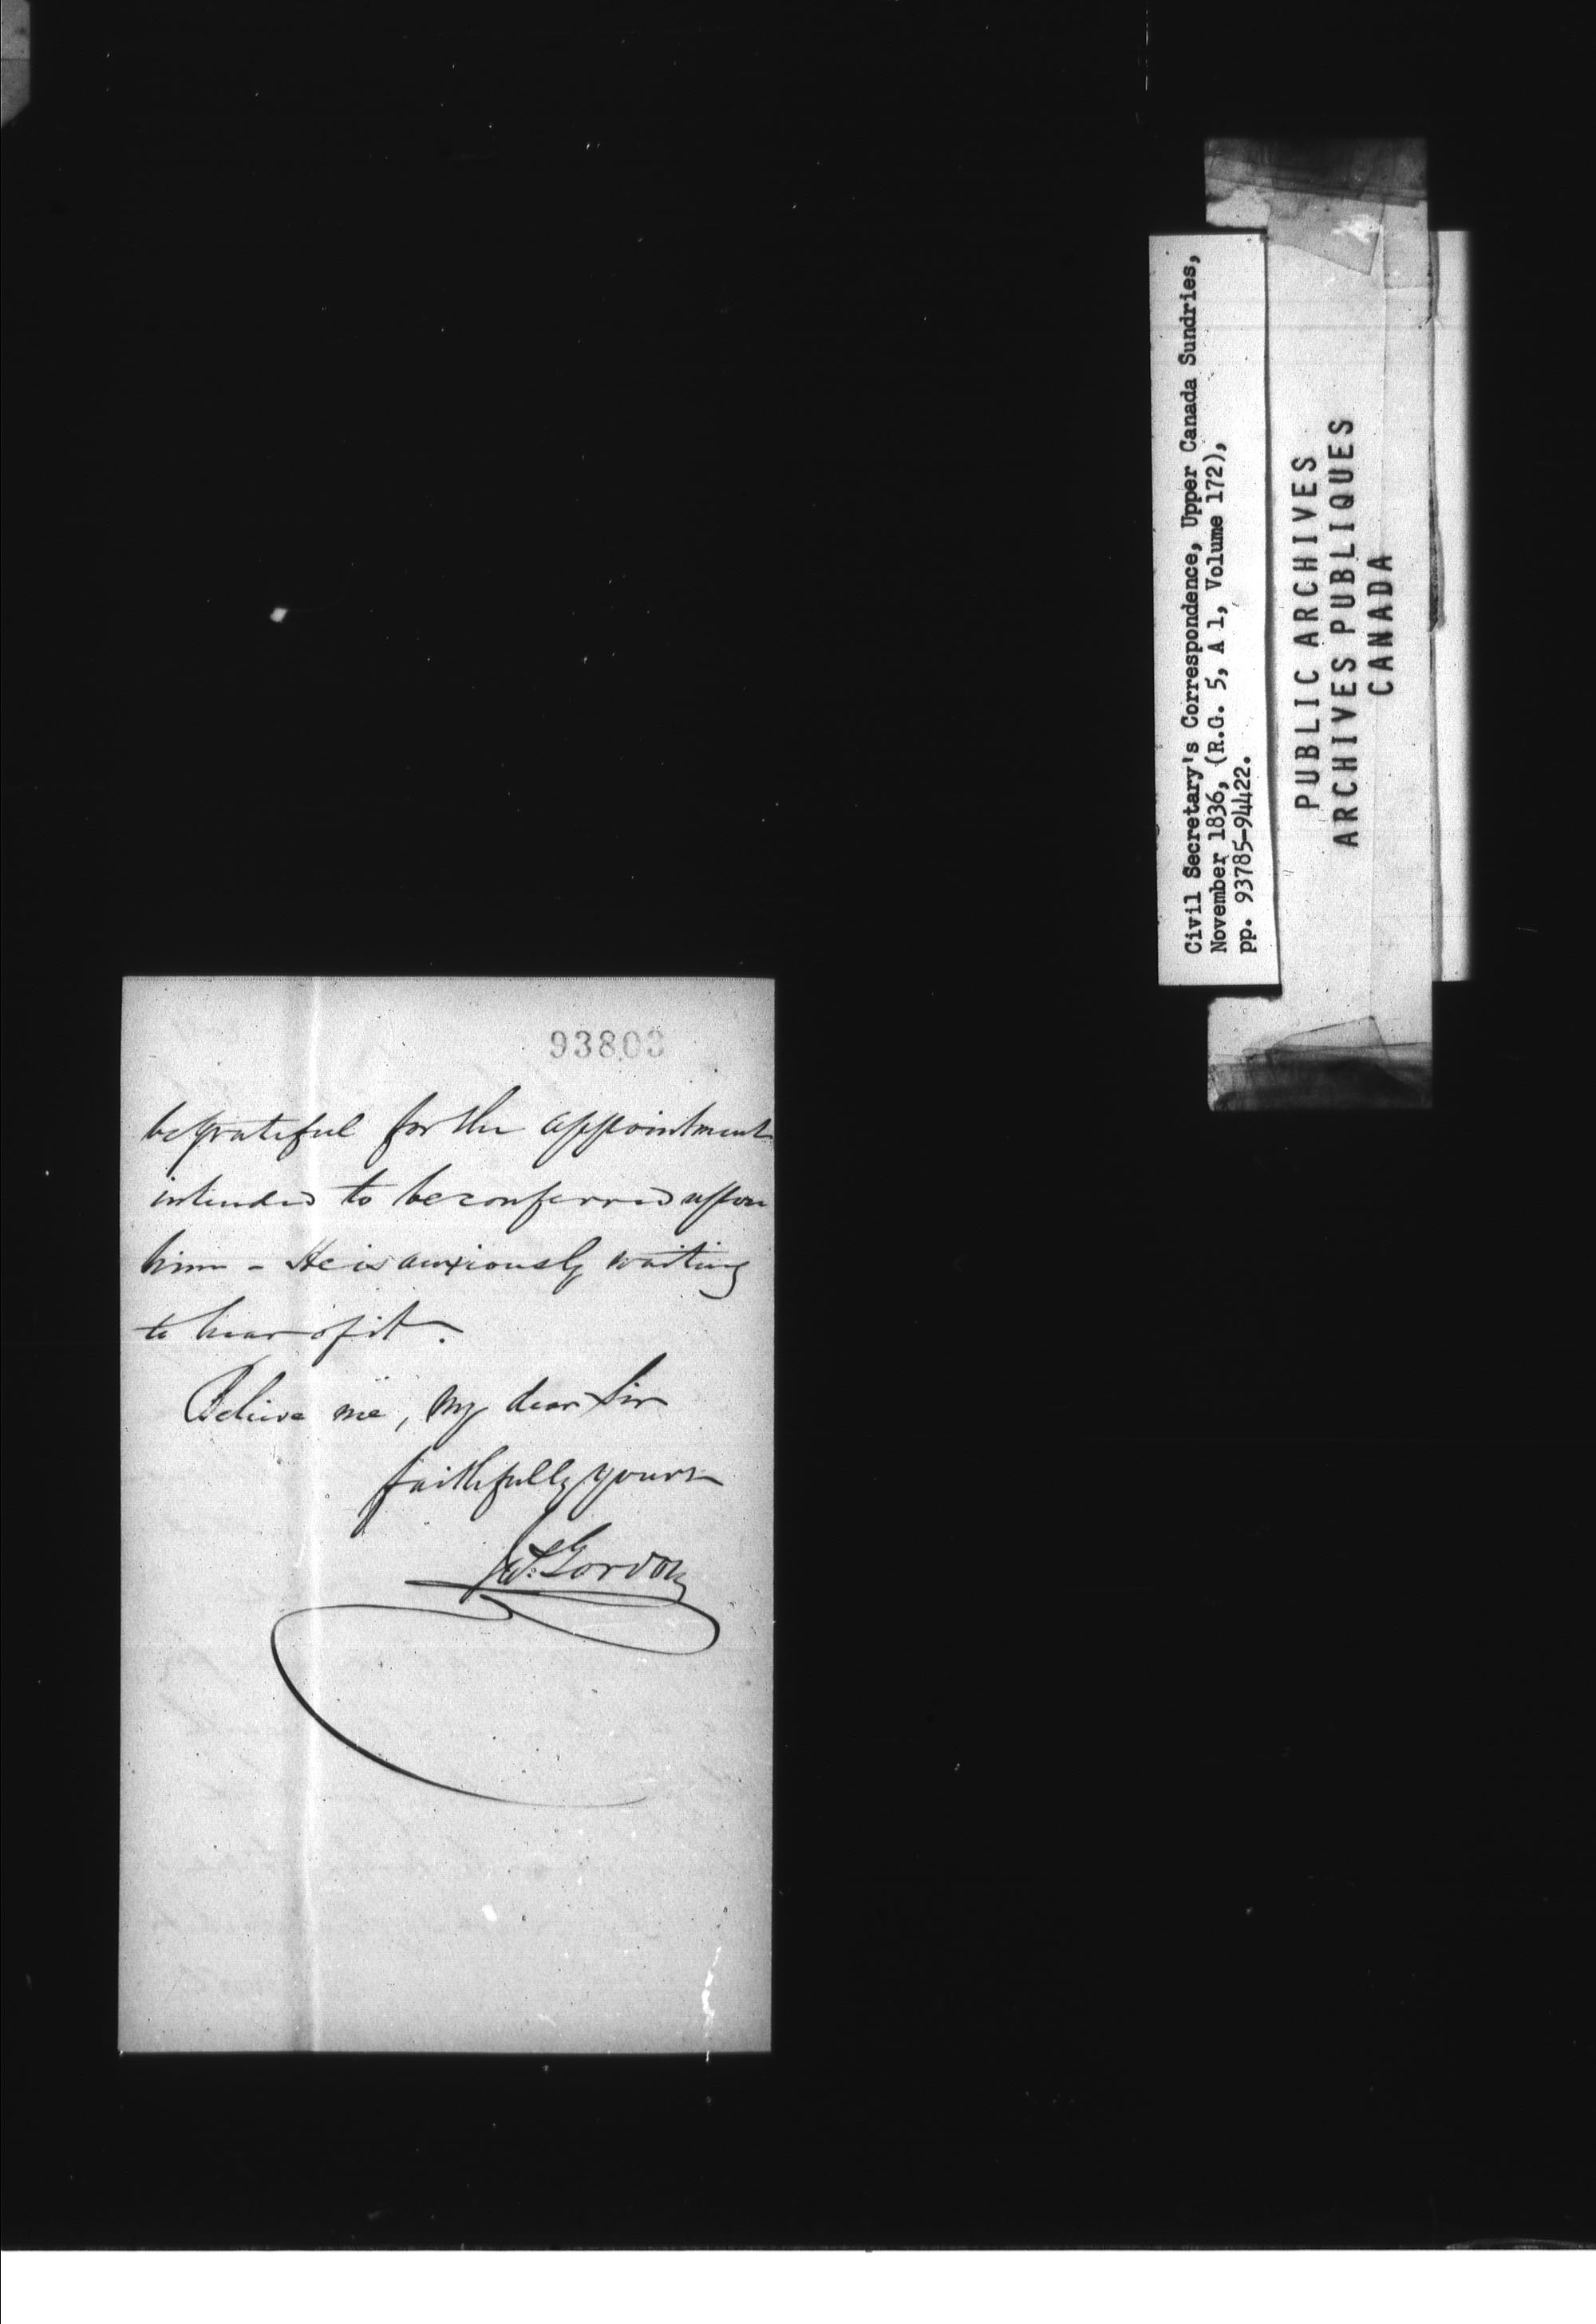 93803
be grateful for the appointment
intended to be conferred upon
him - He is anxiously waiting
to hear of it.
Believe me, my dear Sir
faithfully yours
Jas: Gordon
Civil Secretary's Correspondence, Upper Canada Sundries,
November 1836, (R.G. 5, A 1, Volume 172),
pp. 93785-94422.
PUBLIC ARCHIVES
ARCHIVES PUBLIQUES
CANADA